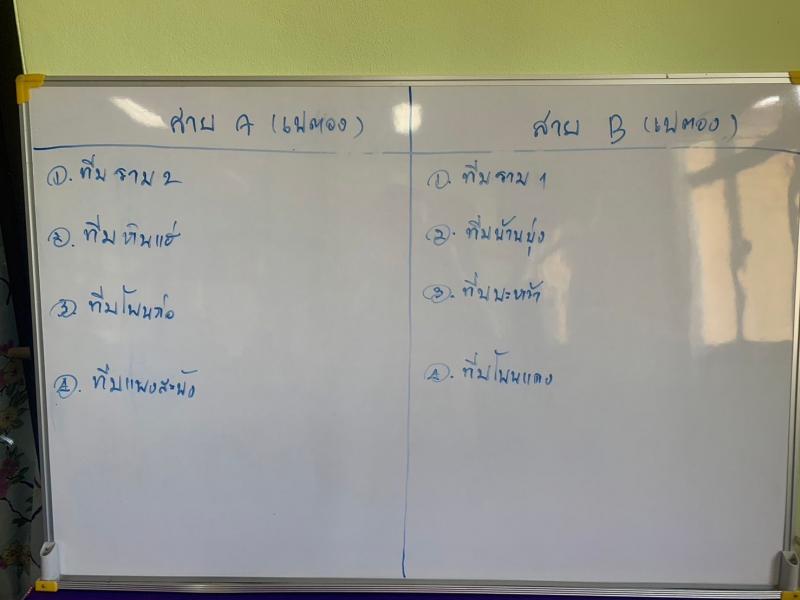 สาย A (เปตอง)
① ทีม ราม 2
② ทีม หินแฮ่
③ ทีมโพนก่อ
④ ทีมแพงสะพัง
สาย B (เปตอง)
① ทีม ราม 1
② ทีมบ้านยุ่ง
③ ทีมมะหว้า
④ ทีมโพนแดง